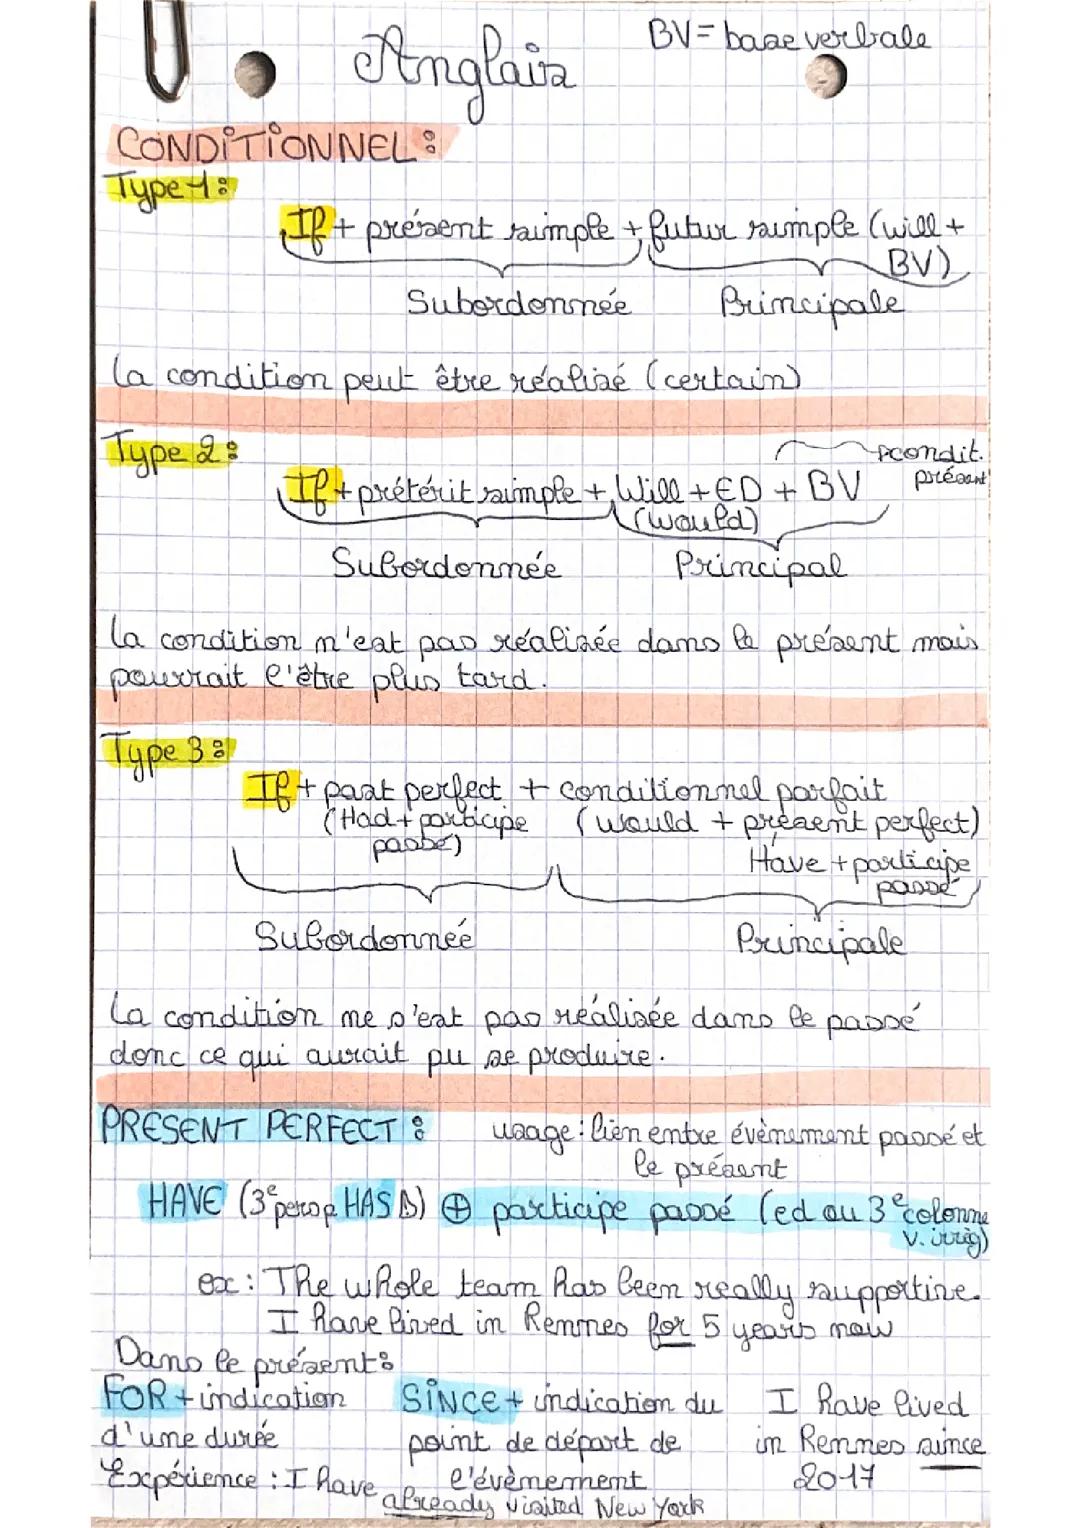 BV = base verbale
Anglais
CONDITIONNEL :
Type 1 :
If + présent simple + futur simple (will +
BV)
Subordonnée Principale
La condition peut être réalisé (certain)
Type 2 :
condit.
présent
If + prétérit simple + Will + ED + BV
(would)
Subordonnée Principal
La condition n'est pas réalisée dans le présent mais
pourrait l'être plus tard.
Type 3 :
If + past perfect + conditionnel parfait
(Had + participe (would + présent perfect)
passé) Have + participe
passé
Subordonnée Principale
La condition ne s'est pas réalisée dans le passé
donc ce qui aurait pu se produire.
PRESENT PERFECT : usage : lien entre évènement passé et
le présent
HAVE (3e pers HAS) + participe passé (ed ou 3e colonne
v. irrég)
ex : The whole team has been really supportive.
I have lived in Rennes for 5 years now
Dans le présent :
FOR + indication SINCE + indication du I have lived
d'une durée point de départ de in Rennes since
Expérience : I have l'évènement 2017
already visited New York